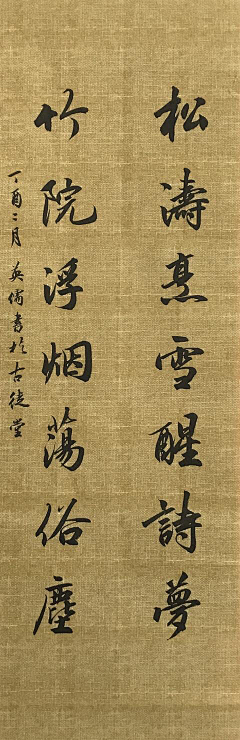 松濤烹雪醒詩夢
竹院浮烟蕩俗塵
丁酉二月英儒書於古徒堂